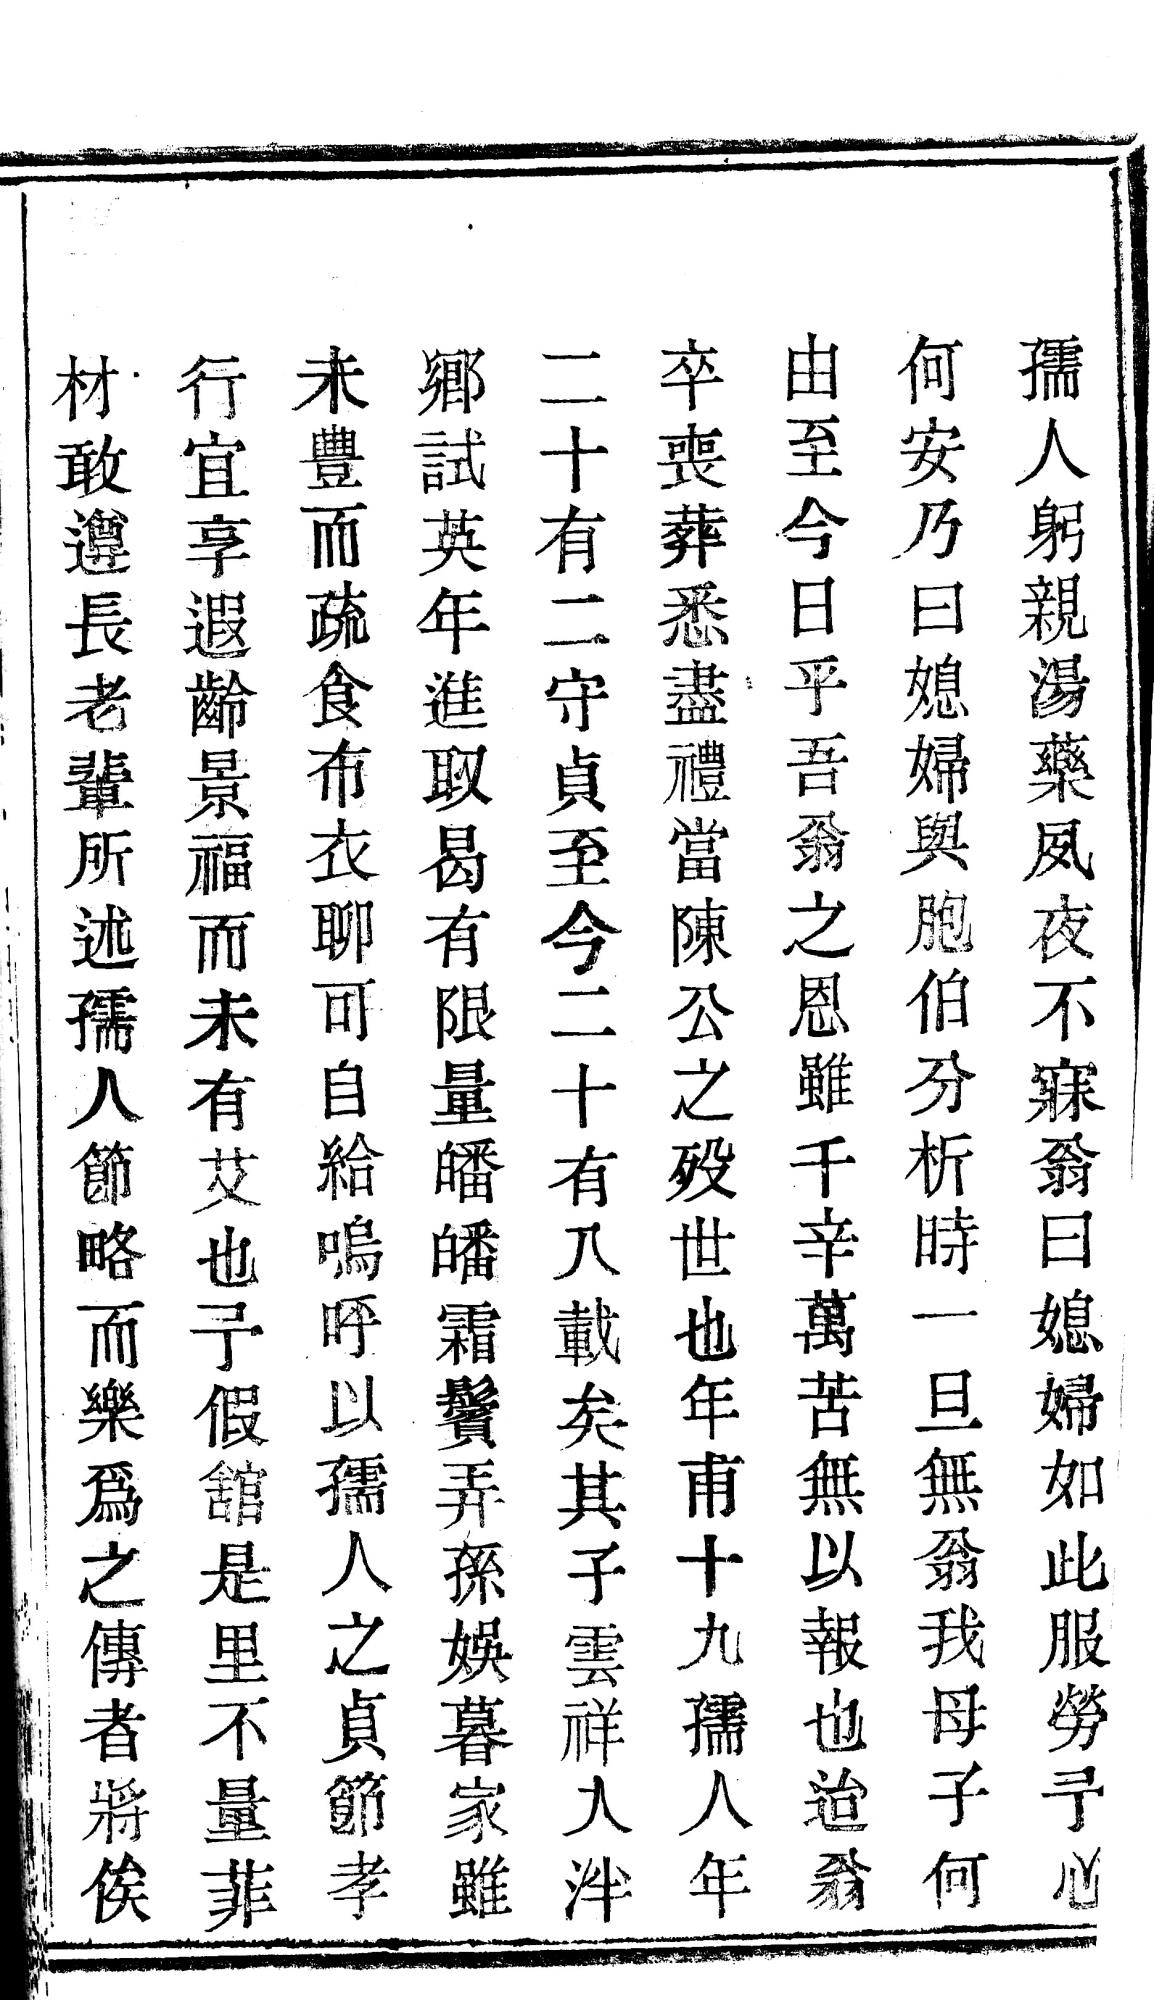 孺人躬親湯藥夙夜不寐翁曰媳婦如此服勞予心
何安乃曰媳婦與胞伯分析時一旦無翁我母子何
由至今日乎吾翁之恩雖千辛萬苦無以報也迨翁
卒喪葬悉盡禮當陳公之歿世也年甫十九孺人年
二十有二守貞至今二十有八載矣其子雲祥入泮
鄉試英年進取曷有限量皤皤霜鬢弄孫娛暮家雖
未豐而疏食布衣聊可自給嗚呼以孺人之貞節孝
行宜享遐齡景福而未有艾也予假舘是里不量菲
材敢遵長老輩所述孺人節略而樂爲之傳者將俟